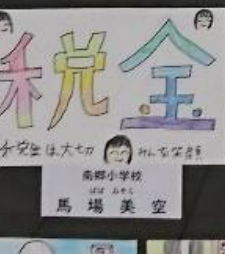 税金
税金は大切 みんな笑顔
南郷小学校
ばば みそら
馬場 美空